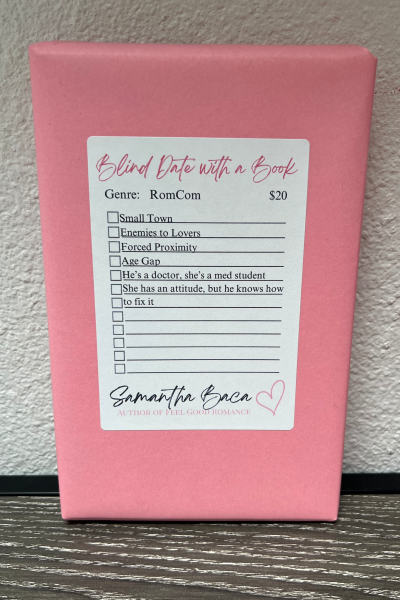 Blind Date with a Book
Genre: RomCom $20
Small Town
Enemies to Lovers
Forced Proximity
Age Gap
He's a doctor, she's a med student
She has an attitude, but he knows how
to fix it
Samantha Baca
AUTHOR OF FEEL GOOD ROMANCE